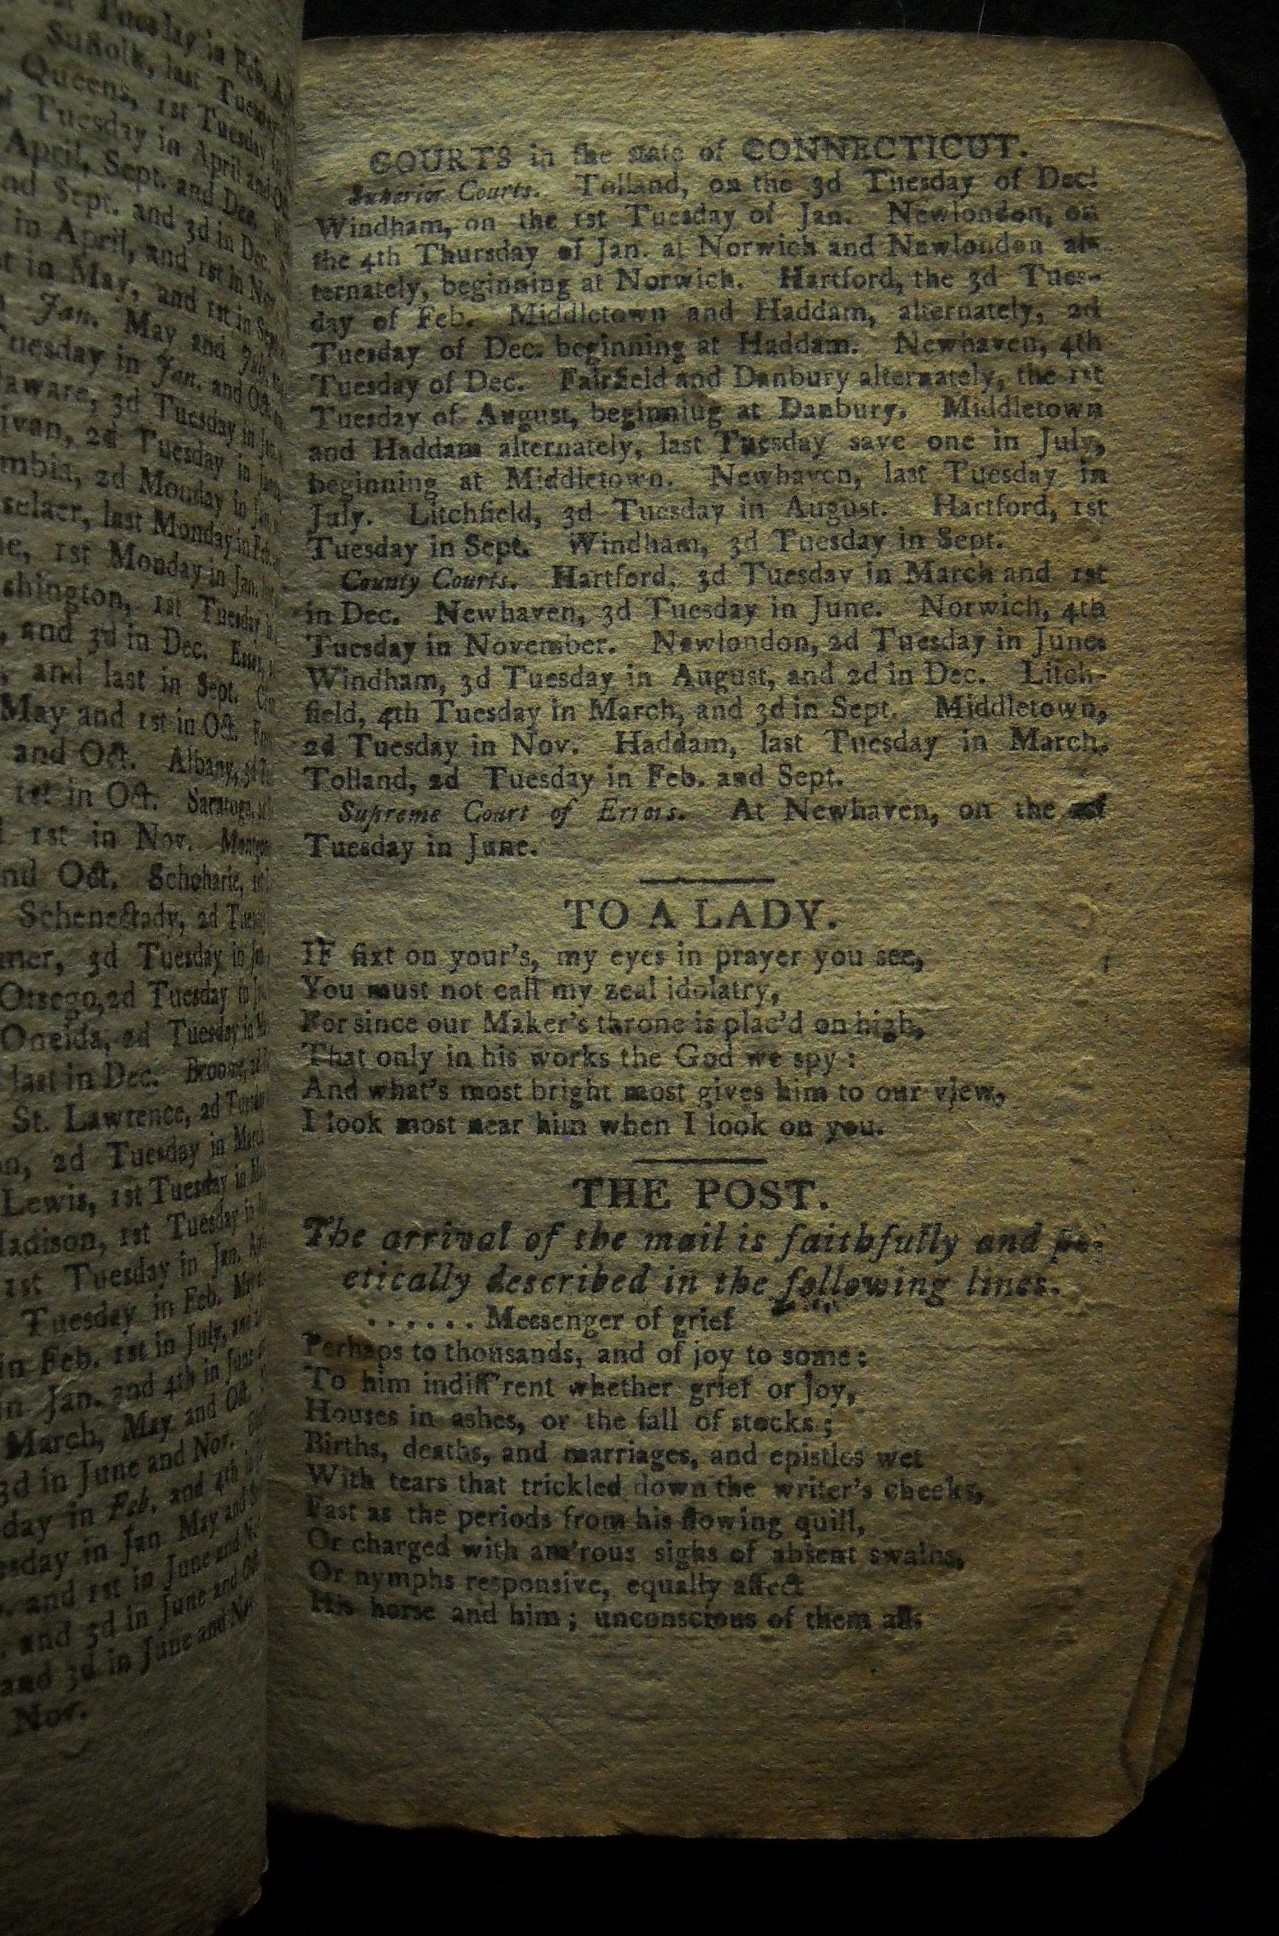 Tuesday in Feb.
Suffolk, last Tuesday
Queens, 1st Tuesday in
Tuesday in April and
April, Sept. and Dec.
Sept. and 3d in Dec.
in April, and 1st in Nov.
in May, and 1st in Sept.
Jan. May and
Tuesday in Jan. and Oct.
3d Tuesday in
2d Tuesday in
2d Monday in
last Monday in
1st Monday in Jan.
1st Tuesday
and 3d in Dec. Essex,
and last in Sept.
May and 1st in Oct.
and Oct. Albany, 3d
1st in Oct. Saratoga,
1st in Nov.
and Oct. Schoharie,
Schenectady, 2d
3d Tuesday in
Otsego, 2d Tuesday in
Oneida, 2d Tuesday in
last in Dec. Broome,
St. Lawrence, 2d Tuesday
2d Tuesday in March
Lewis, 1st Tuesday in
Madison, 1st Tuesday in
1st Tuesday in Jan.
Tuesday in Feb.
in Feb. 1st in July, and
in Jan. and 4th in June
March, May and Oct.
3d in June and Nov.
in Feb. and 4th
in Jan May and
and 1st in June and
and 3d in June and Oct.
and 3d in June and Nov.
Nov.
COURTS in the state of CONNECTICUT.
Superior Courts. Tolland, on the 3d Tuesday of Dec.
Windham, on the 1st Tuesday of Jan. Newlondon, on
the 4th Thursday of Jan. at Norwich and Newlondon al-
ternately, beginning at Norwich. Hartford, the 3d Tues-
day of Feb. Middletown and Haddam, alternately, 2d
Tuesday of Dec. beginning at Haddam. Newhaven, 4th
Tuesday of Dec. Fairfield and Danbury alternately, the 1st
Tuesday of August, beginniug at Danbury. Middletown
and Haddam alternately, last Tuesday save one in July,
beginning at Middletown. Newhaven, last Tuesday in
July. Litchfield, 3d Tuesday in August. Hartford, 1st
Tuesday in Sept. Windham, 3d Tuesday in Sept.
County Courts. Hartford, 3d Tuesday in March and 1st
in Dec. Newhaven, 3d Tuesday in June. Norwich, 4th
Tuesday in November. Newlondon, 2d Tuesday in June.
Windham, 3d Tuesday in August, and 2d in Dec. Litch-
field, 4th Tuesday in March, and 3d in Sept. Middletown,
2d Tuesday in Nov. Haddam, last Tuesday in March.
Tolland, 2d Tuesday in Feb. and Sept.
Supreme Court of Errors. At Newhaven, on the
Tuesday in June.
TO A LADY.
IF fixt on your's, my eyes in prayer you see,
You must not call my zeal idolatry,
For since our Maker's throne is plac'd on high,
That only in his works the God we spy:
And what's most bright most gives him to our view,
I look most near him when I look on you.
THE POST.
The arrival of the mail is faithfully and po-
etically described in the following lines.
. . . . . . Messenger of grief
Perhaps to thousands, and of joy to some:
To him indiff'rent whether grief or joy,
Houses in ashes, or the fall of stocks;
Births, deaths, and marriages, and epistles wet
With tears that trickled down the writer's cheeks,
Fast as the periods from his flowing quill,
Or charged with am'rous sighs of absent swains,
Or nymphs responsive, equally affect
His horse and him; unconscious of them all.